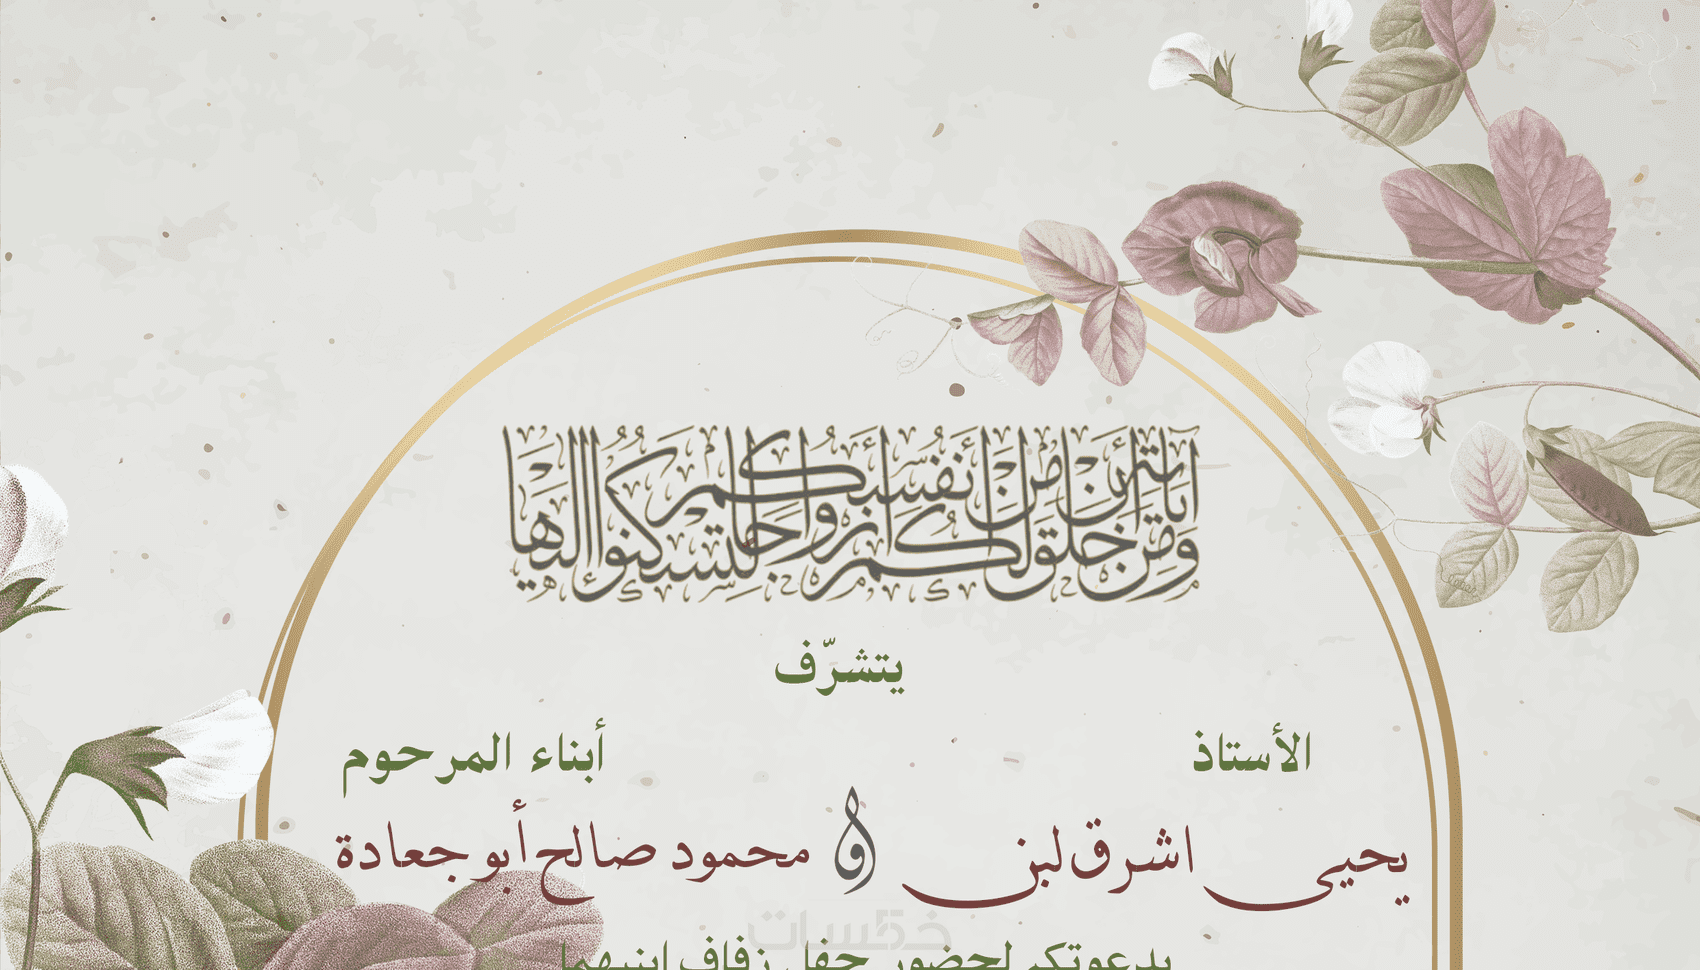 ومن آياته أن خلق لكم من أنفسكم أزواجا لتسكنوا إليها
يتشرّف
الأستاذ أبناء المرحوم
يحيى اشرق لبن و محمود صالح أبو جعادة
خمسات
بدعوتكم لحضور حفل زفاف ابنيهما